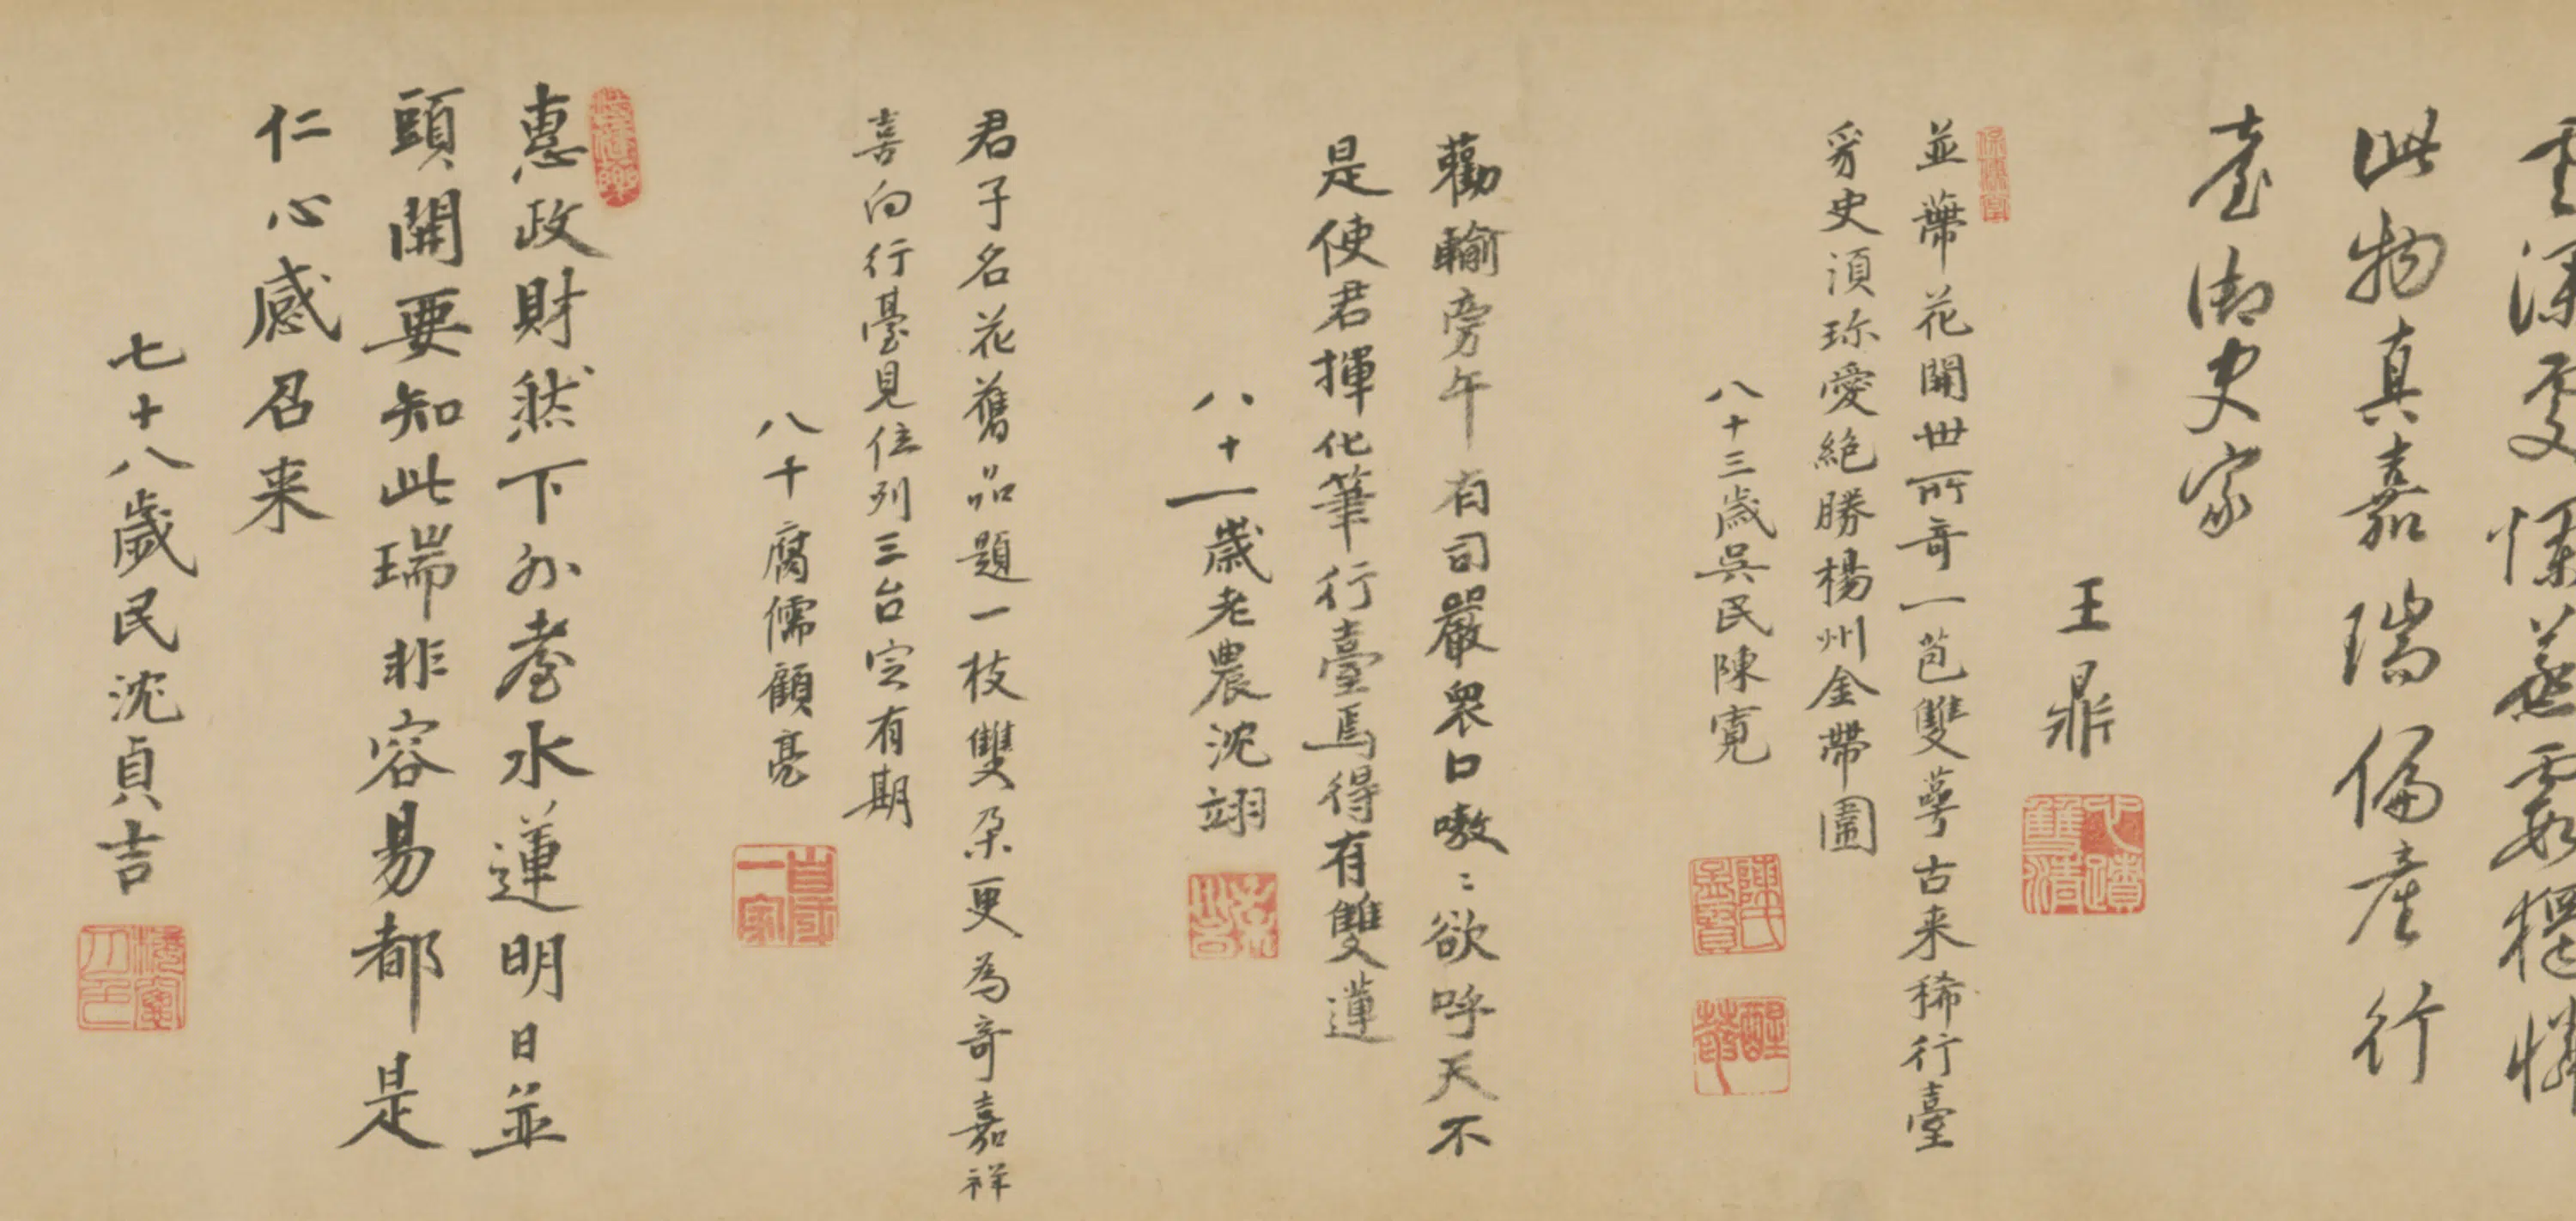 雲深更怪蒸霞擢
此物真嘉瑞偏產行
臺御史家
王鼎
並蒂花開世所奇一苞雙萼古来稀行臺
豸史湏珎愛絕勝楊州金帶圍
八十三歲吳民陳寬
陳氏孟賢
醒菴
勸輸旁午有司嚴衆口嗷〻欲呼天不
是使君揮化筆行臺焉得有雙蓮
八十一歲老農沈翊
君子名花舊品題一枝雙朶更為奇嘉祥
喜向行臺見位列三台定有期
八十腐儒顧亮
惠政財然下外臺水蓮明日並
頭開要知此瑞非容易都是
仁心感召来
七十八歲民沈貞吉